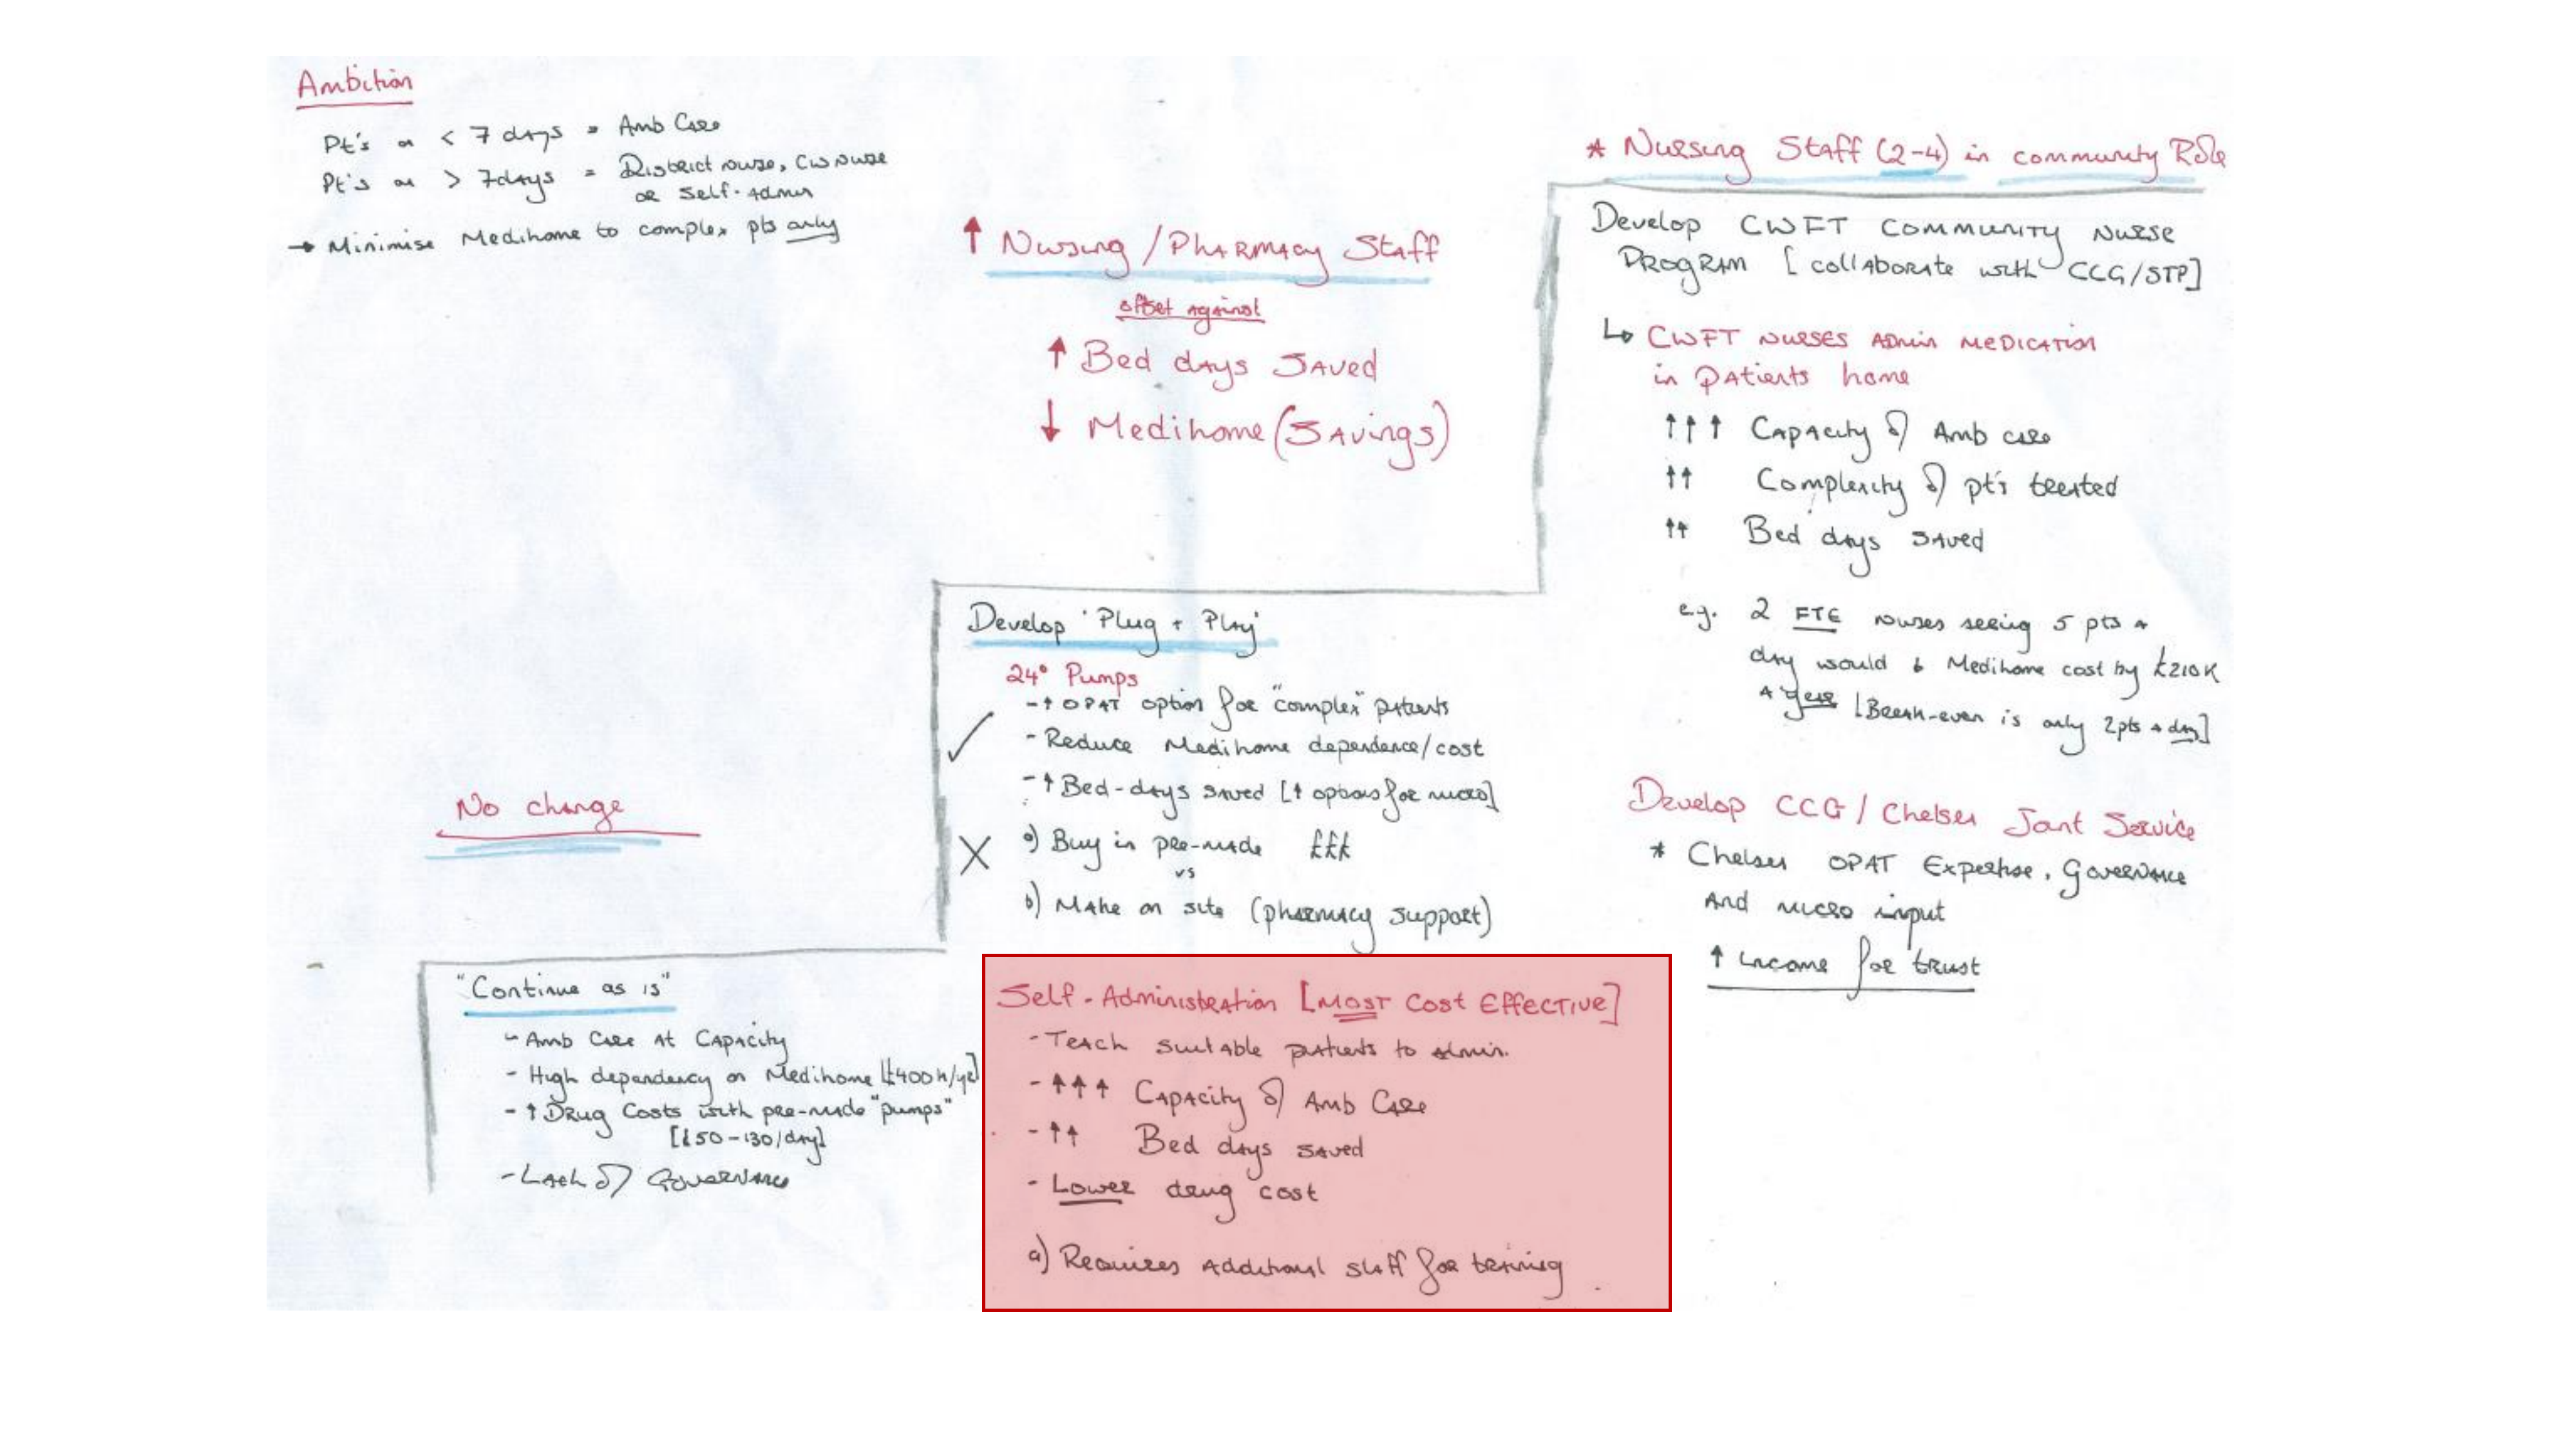 Ambition
Pt's on < 7 days = Amb Care
Pt's on > 7days = District nurse, CW nurse
or Self-Admin
→ Minimise Medihome to complex pts only
No change
"Continue as is"
- Amb Care At Capacity
- High dependency on Medihome [£400K/yr]
- ↑ Drug Costs with pre-made "pumps"
[£50-130/day]
- Lack of Governance
↑ Nursing / Pharmacy Staff
offset against
↑ Bed days Saved
↓ Medihome (Savings)
Develop 'Plug + Play'
24° Pumps
- ↑ OPAT option for "complex" patients
- Reduce Medihome dependence/cost
- ↑ Bed-days saved [↑ options for micro]
a) Buy in pre-made £££
vs
b) Make on site (pharmacy support)
Self-Administration [MOST Cost Effective]
- Teach suitable patients to admin.
- ↑↑↑ Capacity of Amb Care
- ↑↑ Bed days saved
- Lower drug cost
a) Requires Additional staff for training
* Nursing Staff (2-4) in community Role
Develop CWFT Community Nurse
Program [collaborate with CCG/STP]
↳ CWFT nurses Admin medication
in patients home
↑↑↑ Capacity of Amb care
↑↑ Complexity of pt's treated
↑↑ Bed days saved
e.g. 2 FTE nurses seeing 5 pts a
day would ↓ Medihome cost by £210K
a year [Break-even is only 2pts a day]
Develop CCG / Chelsea Joint Service
* Chelsea OPAT Expertise, Governance
And micro input
↑ Income for trust